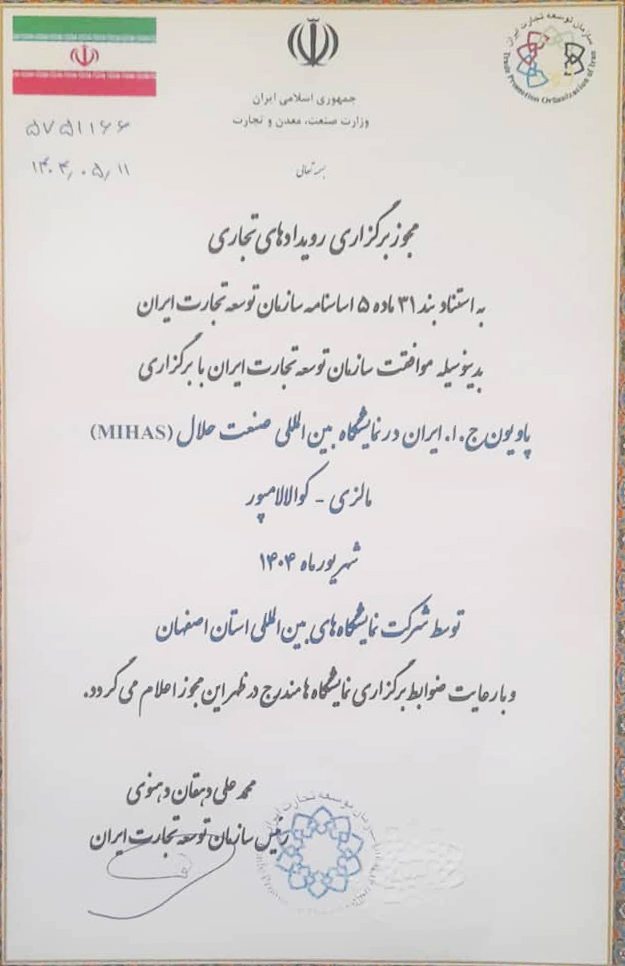 سازمان توسعه تجارت ایران
Trade Promotion Organization of Iran
جمهوری اسلامی ایران
وزارت صنعت، معدن و تجارت
۵۷۵۱۱۶۶
۱۴۰۴٫۰۵٫۱۱
بسمه تعالی
مجوز برگزاری رویدادهای تجاری
به استناد بند ۳۱ ماده ۵ اساسنامه سازمان توسعه تجارت ایران
بدینوسیله موافقت سازمان توسعه تجارت ایران با برگزاری
پاویون ج.ا. ایران در نمایشگاه بین المللی صنعت حلال (MIHAS)
مالزی - کوالالامپور
شهریور ماه ۱۴۰۴
توسط شرکت نمایشگاه های بین المللی استان اصفهان
و با رعایت ضوابط برگزاری نمایشگاه ها مندرج در ظهر این مجوز اعلام می گردد.
محمد علی دهقان دهنوی
رئیس سازمان توسعه تجارت ایران
سازمان توسعه تجارت ایران